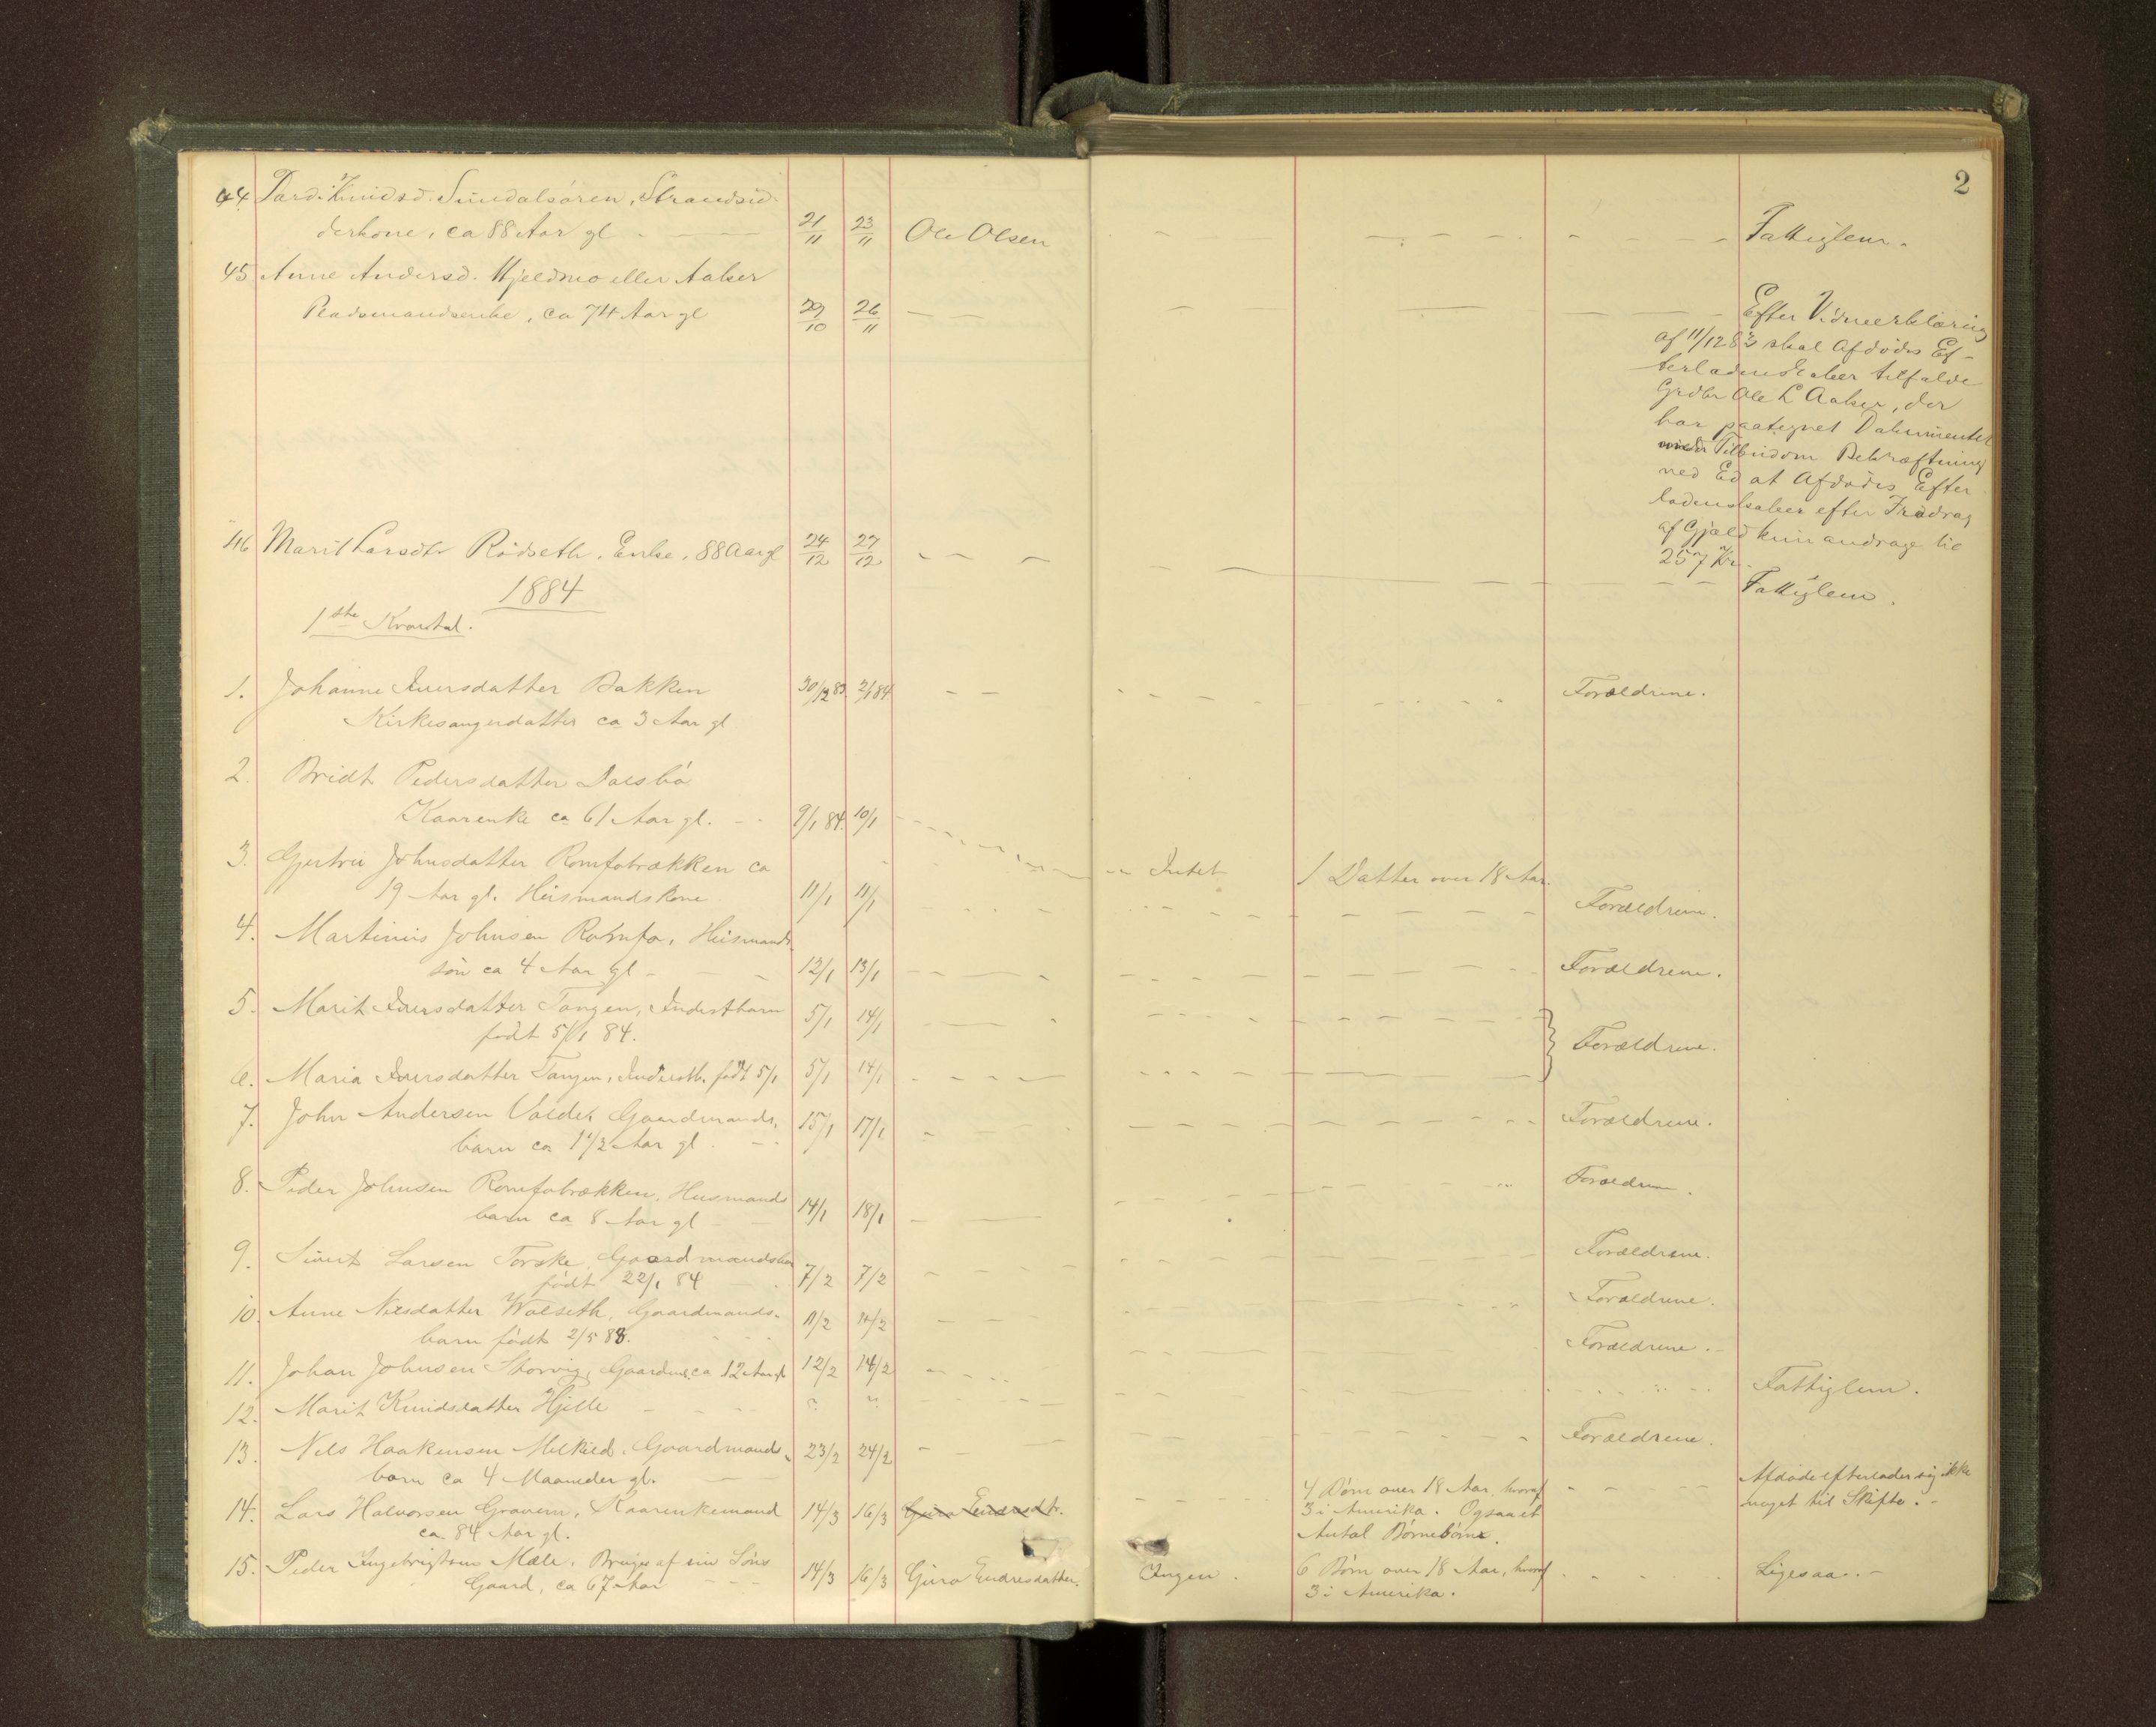 2
44. Pardi Knudsd. Sundalsøren, Strandsid-
derkone, ca 88 Aar gl 21/11 23/11 Ole Olsen Fattiglem.
45 Anne Andersd. Hjeldmo eller Aalser
Pladsmandsenke, ca 74 Aar gl 29/10 26/11
Efter Vidneerklæring
af 11/12 83 skal Afdødes Ef-
terladenskaber tilfalde
Grdbr Ole L Aalser, der
har paategnet Dokumentet
under Tilbudom Bekræftning
med Ed at Afdødes Efter
ladenskaber efter Fradrag
af Gjæld kun androge til
257 Kr.
46 Marit Larsdtr Rødseth, Enke, 88 Aar gl 24/12 27/12 Fattiglem.
1884
1ste Kvartal.
1. Johanne Iversdatter Bakken 30/12 83. 2/1 84 Forældrene.
Kirkesangerdatter ca 3 Aar gl
2. Bridt Pedersdatter Dalsbø
Kaarenke ca 61 Aar gl. 9/1 84. 10/1 Intet 1 Datter over 18 Aar.
3. Gjertru Johnsdatter Romfobrækken ca
19 Aar gl. Husmandskone 11/1 11/1 Forældrene.
4. Martinus Johnsen Romfo, Husmands-
søn ca 4 Aar gl 12/1 13/1 Forældrene.
5. Marit Iversdatter Tangen, Inderstbarn 5/1 14/1
født 5/1 84. Forældrene.
6. Maria Iversdatter Tangen, Inderstb. født 5/1 5/1 14/1
7. John Andersen Volde, Gaardmands- 15/1 17/1 Forældrene.
barn ca 1 1/2 Aar gl
8. Peder Johnsen Romfobrækken, Husmands 14/1 18/1 Forældrene.
barn ca 8 Aar gl
9. Sivert Larsen Torske Gaardmandsbarn 7/2 7/2 Forældrene.
født 22/1 84
10. Anne Nilsdatter Wolseth, Gaardmands- 11/2 14/2 Forældrene.
barn født 2/5 83.
11. Johan Johnsen Storvig, Gaardms. ca 12 Aar gl 12/2 14/2 Forældrene.
12. Marit Knudsdatter Hjelle ? ? Fattiglem.
13. Nils Haakensen Melkild, Gaardmands- 23/2 24/2 Forældrene.
barn ca 4 Maaneder gl.
14. Lars Halvorsen Gravem, Kaarenkemand 14/3 16/3 Guro Endresdtr. 4 Børn over 18 Aar, hvoraf Afdøde efterlader sig ikke
ca. 84 Aar gl. 3 i Amerika. Ogsaa et noget til Skifte.
Antal Børnebørn.
15. Peder Ingebrigtsen Mæle, Bruger af sin Søns 14/3 16/3 Guro Endresdatter. Ingen. 6 Børn over 18 Aar, hvoraf Ligesaa.
Gaard, ca 67 Aar 3 i Amerika.